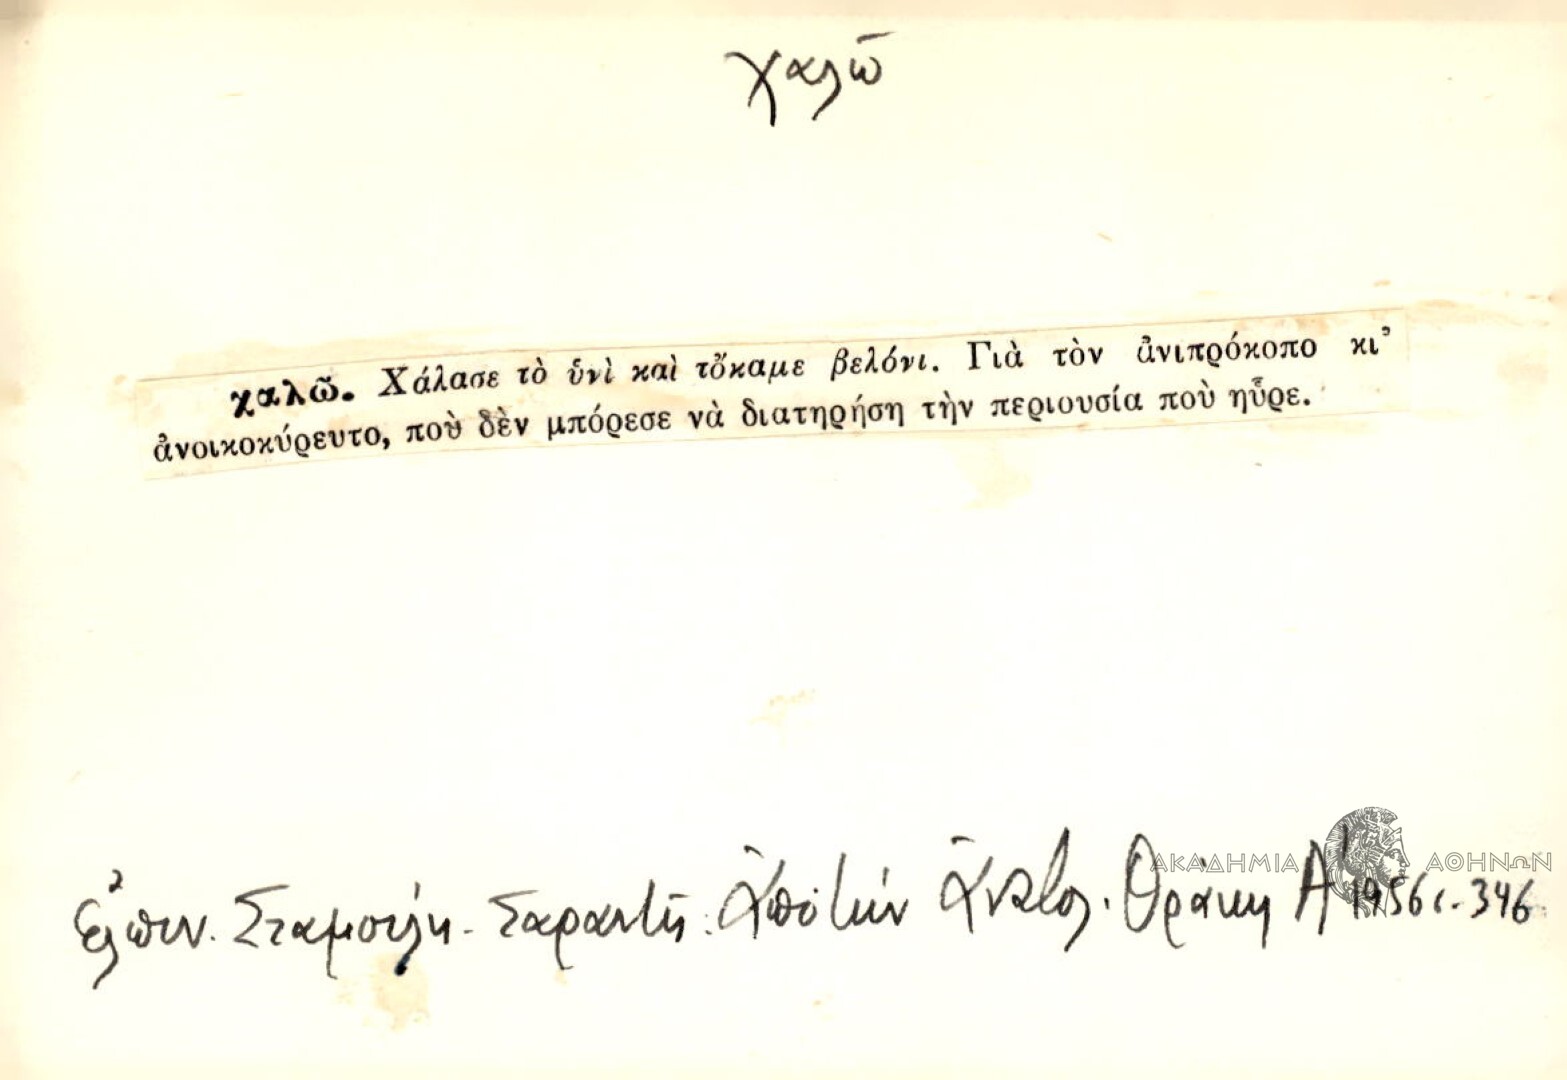 χαλῶ
χαλῶ. Χάλασε τὸ ὑνὶ καὶ τὄκαμε βελόνι. Γιὰ τὸν ἀνιπρόκοπο κι᾿
ἀνοικοκύρευτο, ποὺ δὲν μπόρεσε νὰ διατηρήση τὴν περιουσία ποὺ ηὗρε.
Ἐλπιν. Σταμούλη - Σαραντῆ: Ἀπὸ τὴν Ἀνατολ. Θράκη Α' 1956 σ. 346
ΑΚΑΔΗΜΙΑ ΑΘΗΝΩΝ